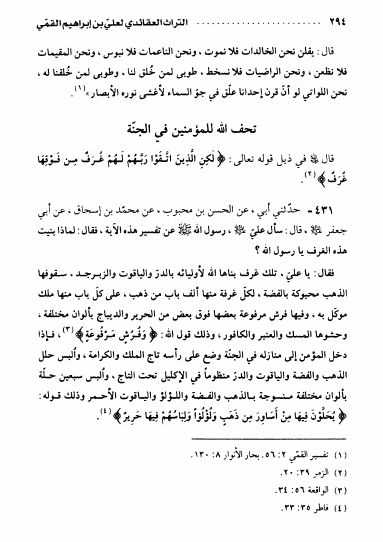 ٢٩٤ ........ التراث العقائدي لعلي بن إبراهيم القمّي
قال : يقلن نحن الخالدات فلا نموت ، ونحن الناعمات فلا نبوس ، ونحن المقيمات
فلا نظعن ، ونحن الراضيات فلا نسخط ، طوبى لمن خُلق لنا ، وطوبى لمن خُلقنا له ،
نحن اللواتي لو أنّ قرن إحدانا علّق في جوّ السماء لأغشى نوره الأبصار»(١).
تحف الله للمؤمنين في الجنّة
قال ﷺ في ذيل قوله تعالى : ﴿ لَكِنِ الَّذِينَ اتَّقَوْا رَبَّهُمْ لَهُمْ غُرَفٌ مِن فَوْقِهَا
غُرَفٌ ﴾(٢).
٤٣١ - حدّثني أبي ، عن الحسن بن محبوب ، عن محمّد بن إسحاق ، عن أبي
جعفر ﵇ ، قال : سأل عليّ ﵇ ، رسول الله ﷺ عن تفسير هذه الآية ، فقال : لماذا بنيت
هذه الغرف يا رسول الله ؟
فقال : يا عليّ ، تلك غرف بناها الله لأوليائه بالدرّ والياقوت والزبرجد ، سقوفها
الذهب محبوكة بالفضة ، لكلّ غرفة منها ألف باب من ذهب ، على كلّ باب منها ملك
موكّل به ، وفيها فرش مرفوعة بعضها فوق بعض من الحرير والديباج بألوان مختلفة ،
وحشوها المسك والعنبر والكافور ، وذلك قول الله : ﴿ وَفُرُشٍ مَرْفُوعَةٍ ﴾(٣) ، فإذا
دخل المؤمن إلى منازله في الجنّة وضع على رأسه تاج الملك والكرامة ، وأُلبس حلل
الذهب والفضة والياقوت والدرّ منظوماً في الإكليل تحت التاج ، وأُلبس سبعين حلّة
بألوان مختلفة منسوجة بالذهب والفضة واللؤلؤ والياقوت الأحمر وذلك قوله :
﴿ يُحَلَّوْنَ فِيهَا مِنْ أَسَاوِرَ مِن ذَهَبٍ وَلُؤْلُؤاً وَلِبَاسُهُمْ فِيهَا حَرِيرٌ ﴾(٤).
(١) تفسير القمّي ٢ : ٥٦. بحار الأنوار ٨ : ١٣٠.
(٢) الزمر ٣٩ : ٢٠.
(٣) الواقعة ٥٦ : ٣٤.
(٤) فاطر ٣٥ : ٣٣.